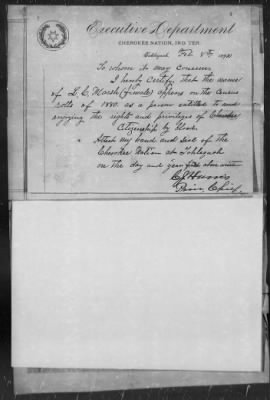 Executive Department
CHEROKEE NATION, IND. TER.
Tahlequah, Feb 8th 1892
To whom it may concern
I hereby certify that the name
of L. C. Marsh (female) appears on the Census
rolls of 1880. as a person entitled to and
enjoying the rights and privileges of Cherokee
Citizenship by blood.
Attest my hand and seal of the
Cherokee Nation at Tahlequah
on the day and year first above written
C J Harris
Prin. Chief